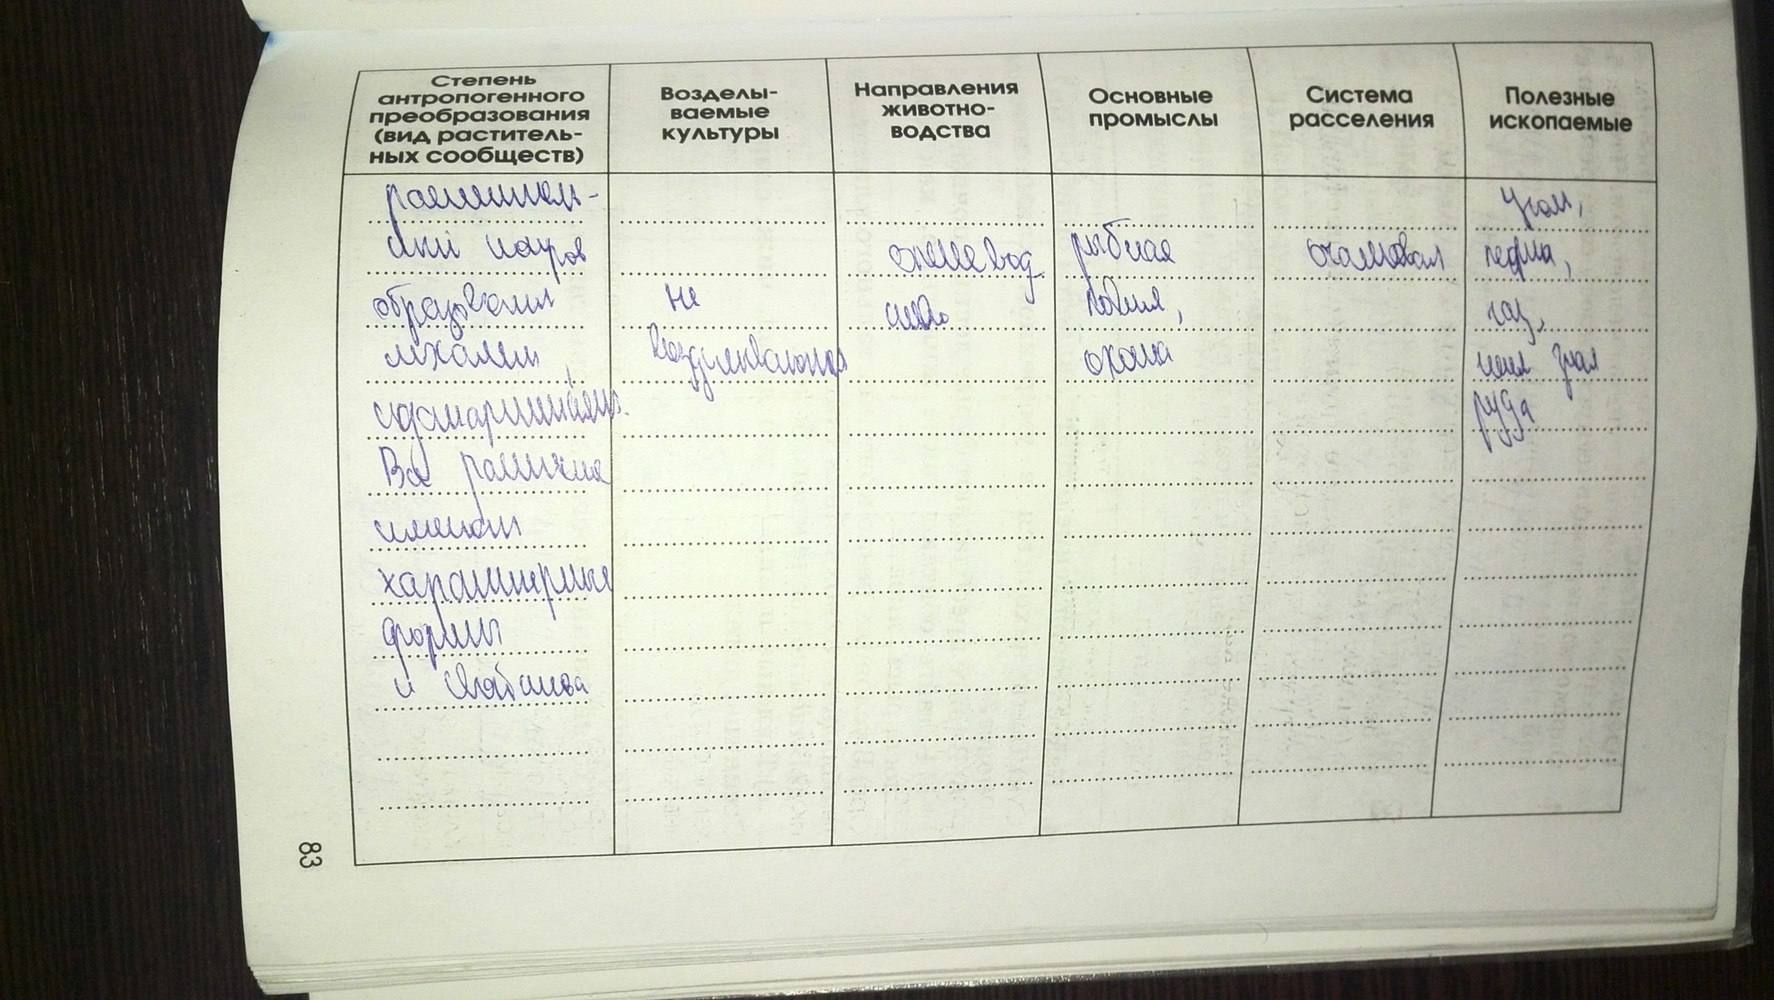 Степень
антропогенного
преобразования
(вид раститель-
ных сообществ)
Возделы-
ваемые
культуры
Направления
животно-
водства
Основные
промыслы
Система
расселения
Полезные
ископаемые
раститель-
ный покров
образован
мхами,
Все растения
имеют
характерные
формы
и
не
возделываются
оленевод
ство
рыбная
ловля,
охота
очаговая
уголь,
нефть,
газ,
руда
83